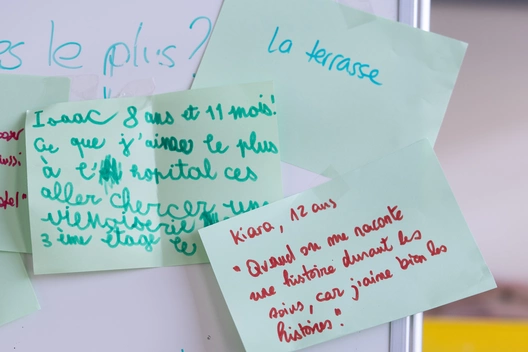 es le plus?
La terrasse
Isaac 8 ans et 11 mois!
Ce que j'aime le plus
à l' hopital ces
aller chercher une
viennoiserie
3ème étage le
Kiara, 12 ans
"Quand on me raconte
une histoire durant les
soins, car j'aime bien les
histoires".